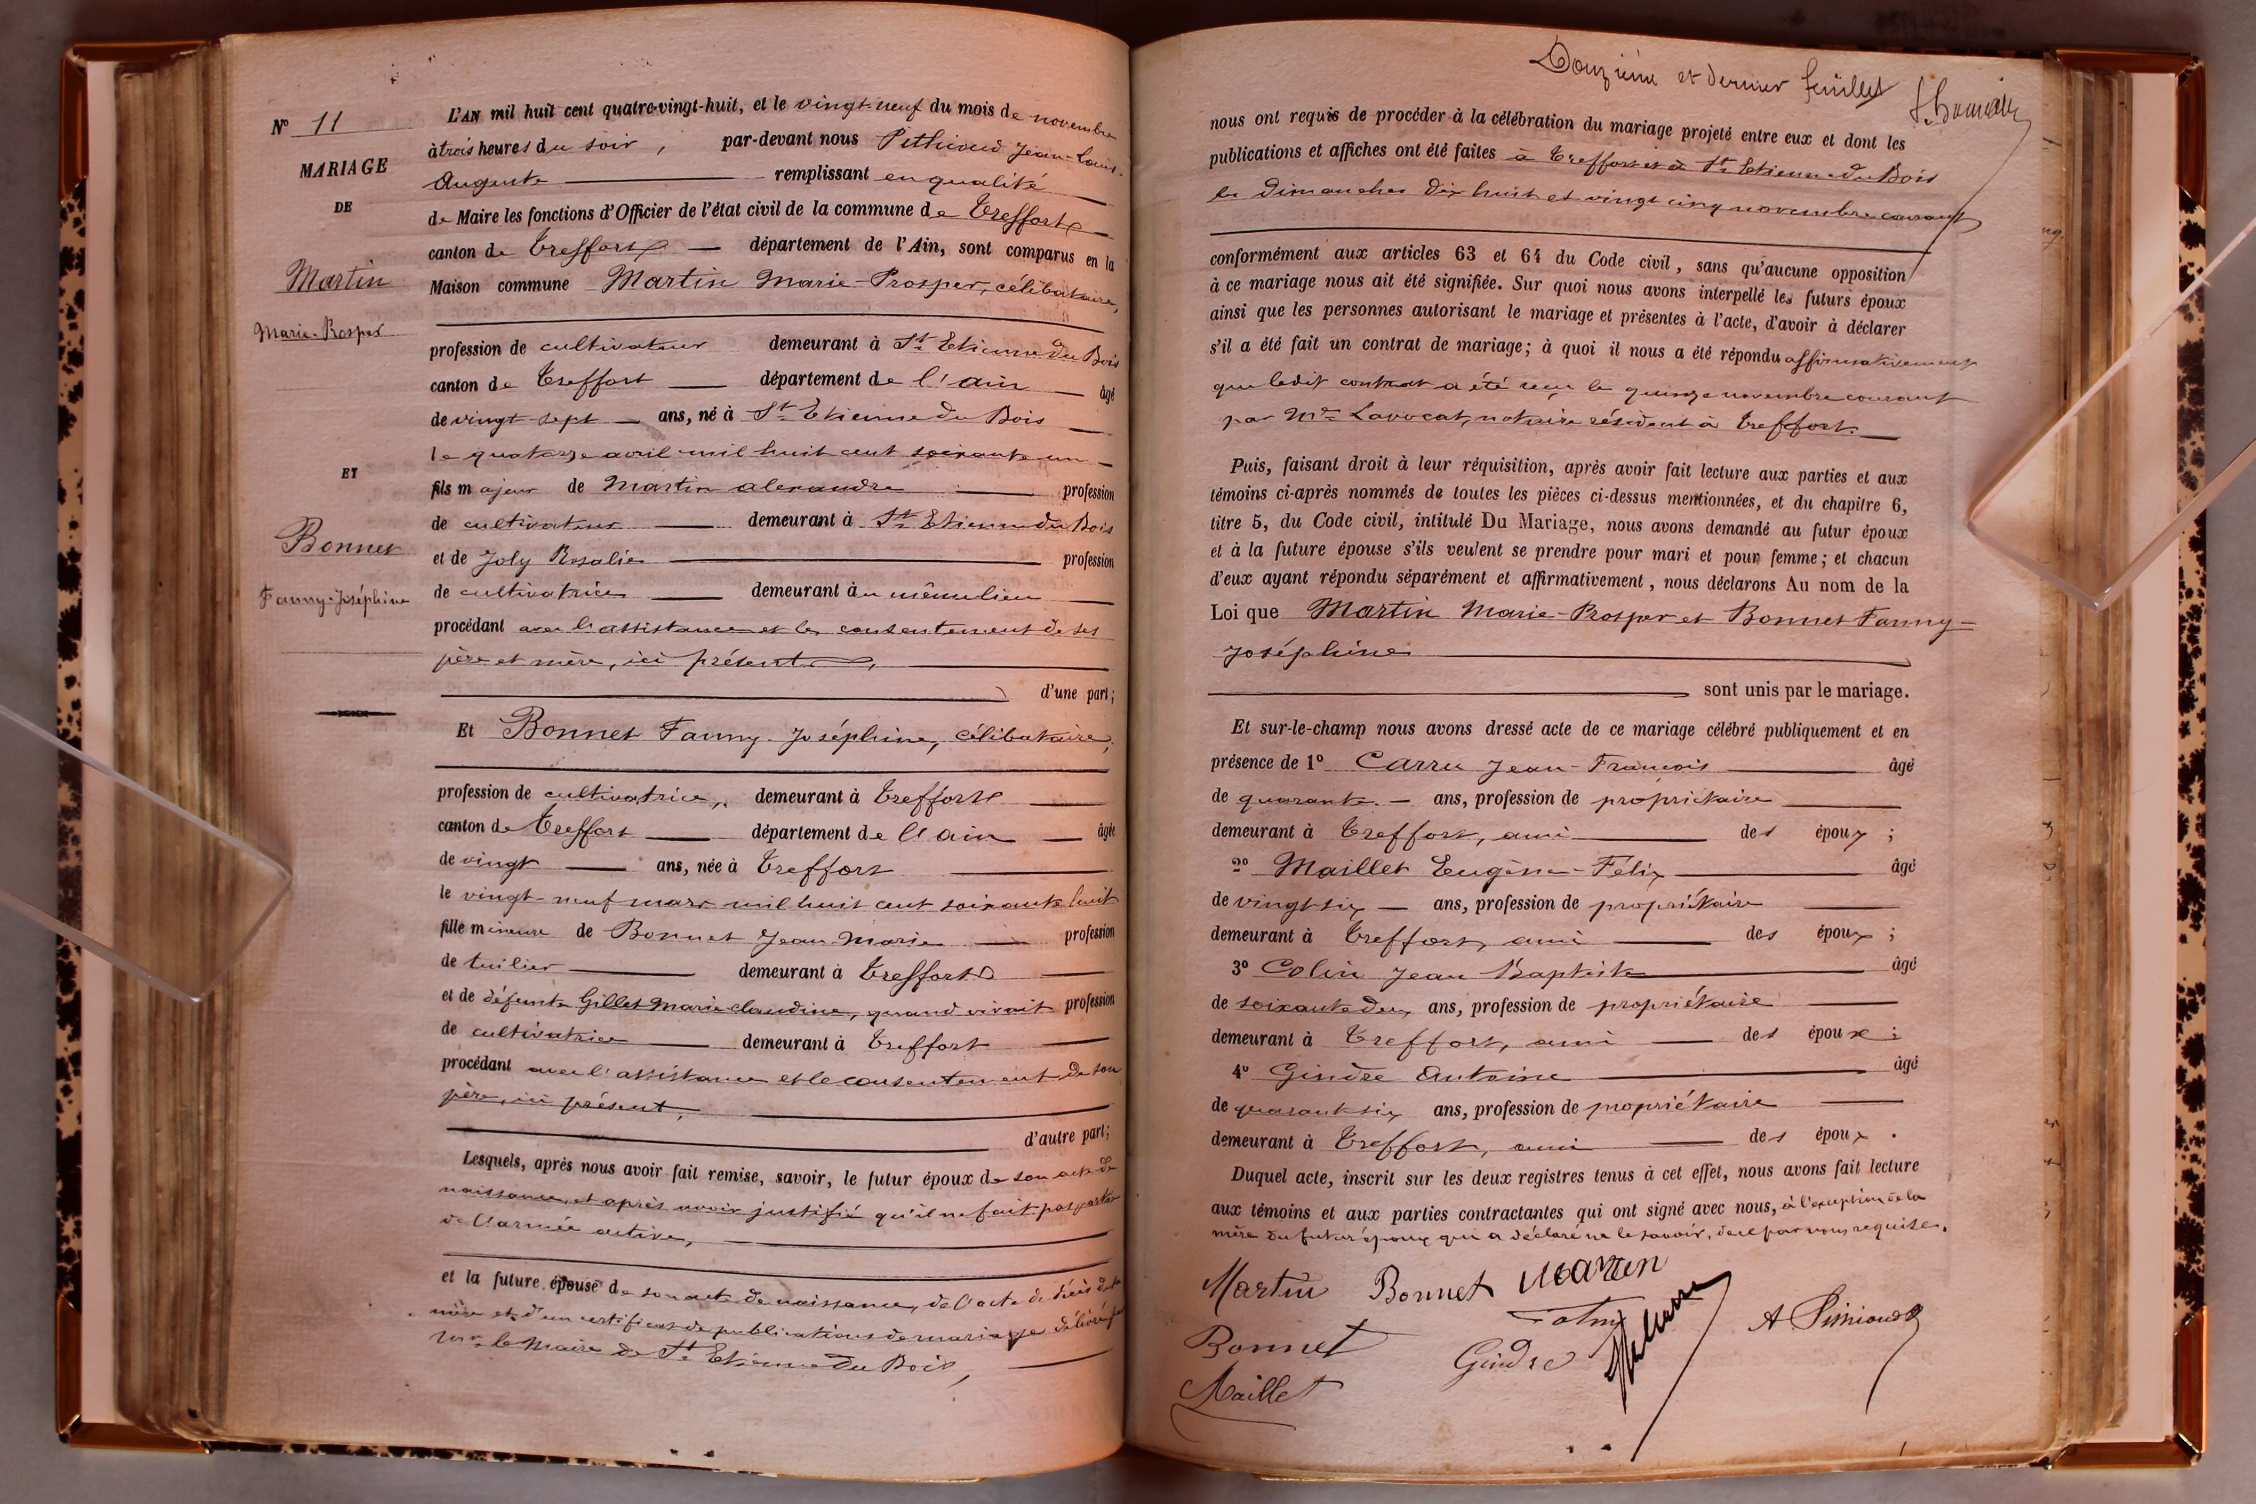 N° 11
MARIAGE
DE
Martin
Marie-Prosper
ET
Bonnet
Fanny-Joséphine
L'AN mil huit cent quatre-vingt-huit, et le vingt-neuf du mois de novembre
à trois heures du soir, par-devant nous Jean-Louis-
Auguste remplissant en qualité
de Maire les fonctions d'Officier de l'état civil de la commune de Treffort
canton de Treffort département de l'Ain, sont comparus en la
Maison commune Martin Marie-Prosper, célibataire,
profession de cultivateur demeurant à St Etienne du Bois
canton de Treffort département de l'ain âgé
de vingt sept ans, né à St Etienne du Bois
le quatorze avril mil huit cent soixante un
fils majeur de Martin alexandre profession
de cultivateur demeurant à St Etienne du Bois
et de Joly Rosalie profession
de cultivatrice demeurant au même lieu
procédant avec l'assistance et le consentement de ses
père et mère, ici présents,
d'une part;
Et Bonnet Fanny-Joséphine, célibataire,
profession de cultivatrice, demeurant à Treffort
canton de Treffort département de l'ain âgée
de vingt ans, née à Treffort
le vingt-neuf mars mil huit cent soixante huit
fille mineure de Bonnet Jean-Marie profession
de tuilier demeurant à Treffort
et de défunte Gillet Marie-claudine, quand vivait profession
de cultivatrice demeurant à Treffort
procédant avec l'assistance et le consentement de son
père, ici présent,
d'autre part;
Lesquels, après nous avoir fait remise, savoir, le futur époux de son acte de
naissance, et après avoir justifié qu'il ne fait pas partie
de l'armée active,
et la future épouse de son acte de naissance, de l'acte de décès de sa
mère et d'un certificat de publications de mariage délivré par
Mr le Maire de St Etienne du Bois,
Douzième et dernier feuillet
nous ont requis de procéder à la célébration du mariage projeté entre eux et dont les
publications et affiches ont été faites à Treffort et à St Etienne du Bois
les dimanches dix huit et vingt cinq novembre courant
conformément aux articles 63 et 64 du Code civil, sans qu'aucune opposition
à ce mariage nous ait été signifiée. Sur quoi nous avons interpellé les futurs époux
ainsi que les personnes autorisant le mariage et présentes à l'acte, d'avoir à déclarer
s'il a été fait un contrat de mariage; à quoi il nous a été répondu affirmativement
que ledit contrat a été reçu le quinze novembre courant
par Me Lavocat, notaire résident à Treffort.
Puis, faisant droit à leur réquisition, après avoir fait lecture aux parties et aux
témoins ci-après nommés de toutes les pièces ci-dessus mentionnées, et du chapitre 6,
titre 5, du Code civil, intitulé Du Mariage, nous avons demandé au futur époux
et à la future épouse s'ils veulent se prendre pour mari et pour femme; et chacun
d'eux ayant répondu séparément et affirmativement, nous déclarons Au nom de la
Loi que Martin Marie-Prosper et Bonnet Fanny-
Joséphine
sont unis par le mariage.
Et sur-le-champ nous avons dressé acte de ce mariage célébré publiquement et en
présence de 1° Carru Jean-François âgé
de quarante ans, profession de propriétaire
demeurant à Treffort, ami des époux;
2° Maillet Eugène-Félix âgé
de vingt six ans, profession de propriétaire
demeurant à Treffort, ami des époux;
3° Colin Jean Baptiste âgé
de soixante deux ans, profession de propriétaire
demeurant à Treffort, ami des époux;
4° Gindre Antoine âgé
de quarante six ans, profession de propriétaire
demeurant à Treffort, ami des époux.
Duquel acte, inscrit sur les deux registres tenus à cet effet, nous avons fait lecture
aux témoins et aux parties contractantes qui ont signé avec nous, à l'exception de la
mère du futur époux qui a déclaré ne le savoir, de ce par nous requise.
Martin Bonnet Martin
Bonnet Gindre
Maillet